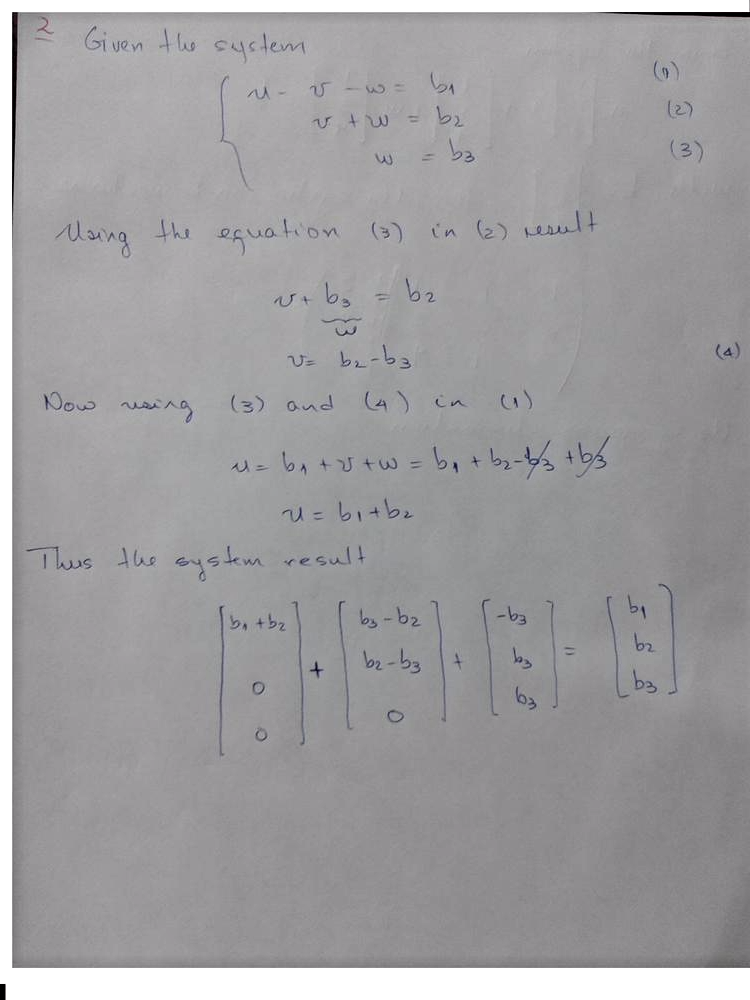 2 Given the system
u - v - w = b1 (1)
v + w = b2 (2)
w = b3 (3)
Using the equation (3) in (2) result
v + b3 = b2
w
v = b2 - b3 (4)
Now using (3) and (4) in (1)
u = b1 + v + w = b1 + b2 - b3 + b3
u = b1 + b2
Thus the system result
[b1 + b2] [b3 - b2] [-b3] [b1]
[0] + [b2 - b3] + [b3] = [b2]
[0] [0] [b3] [b3]